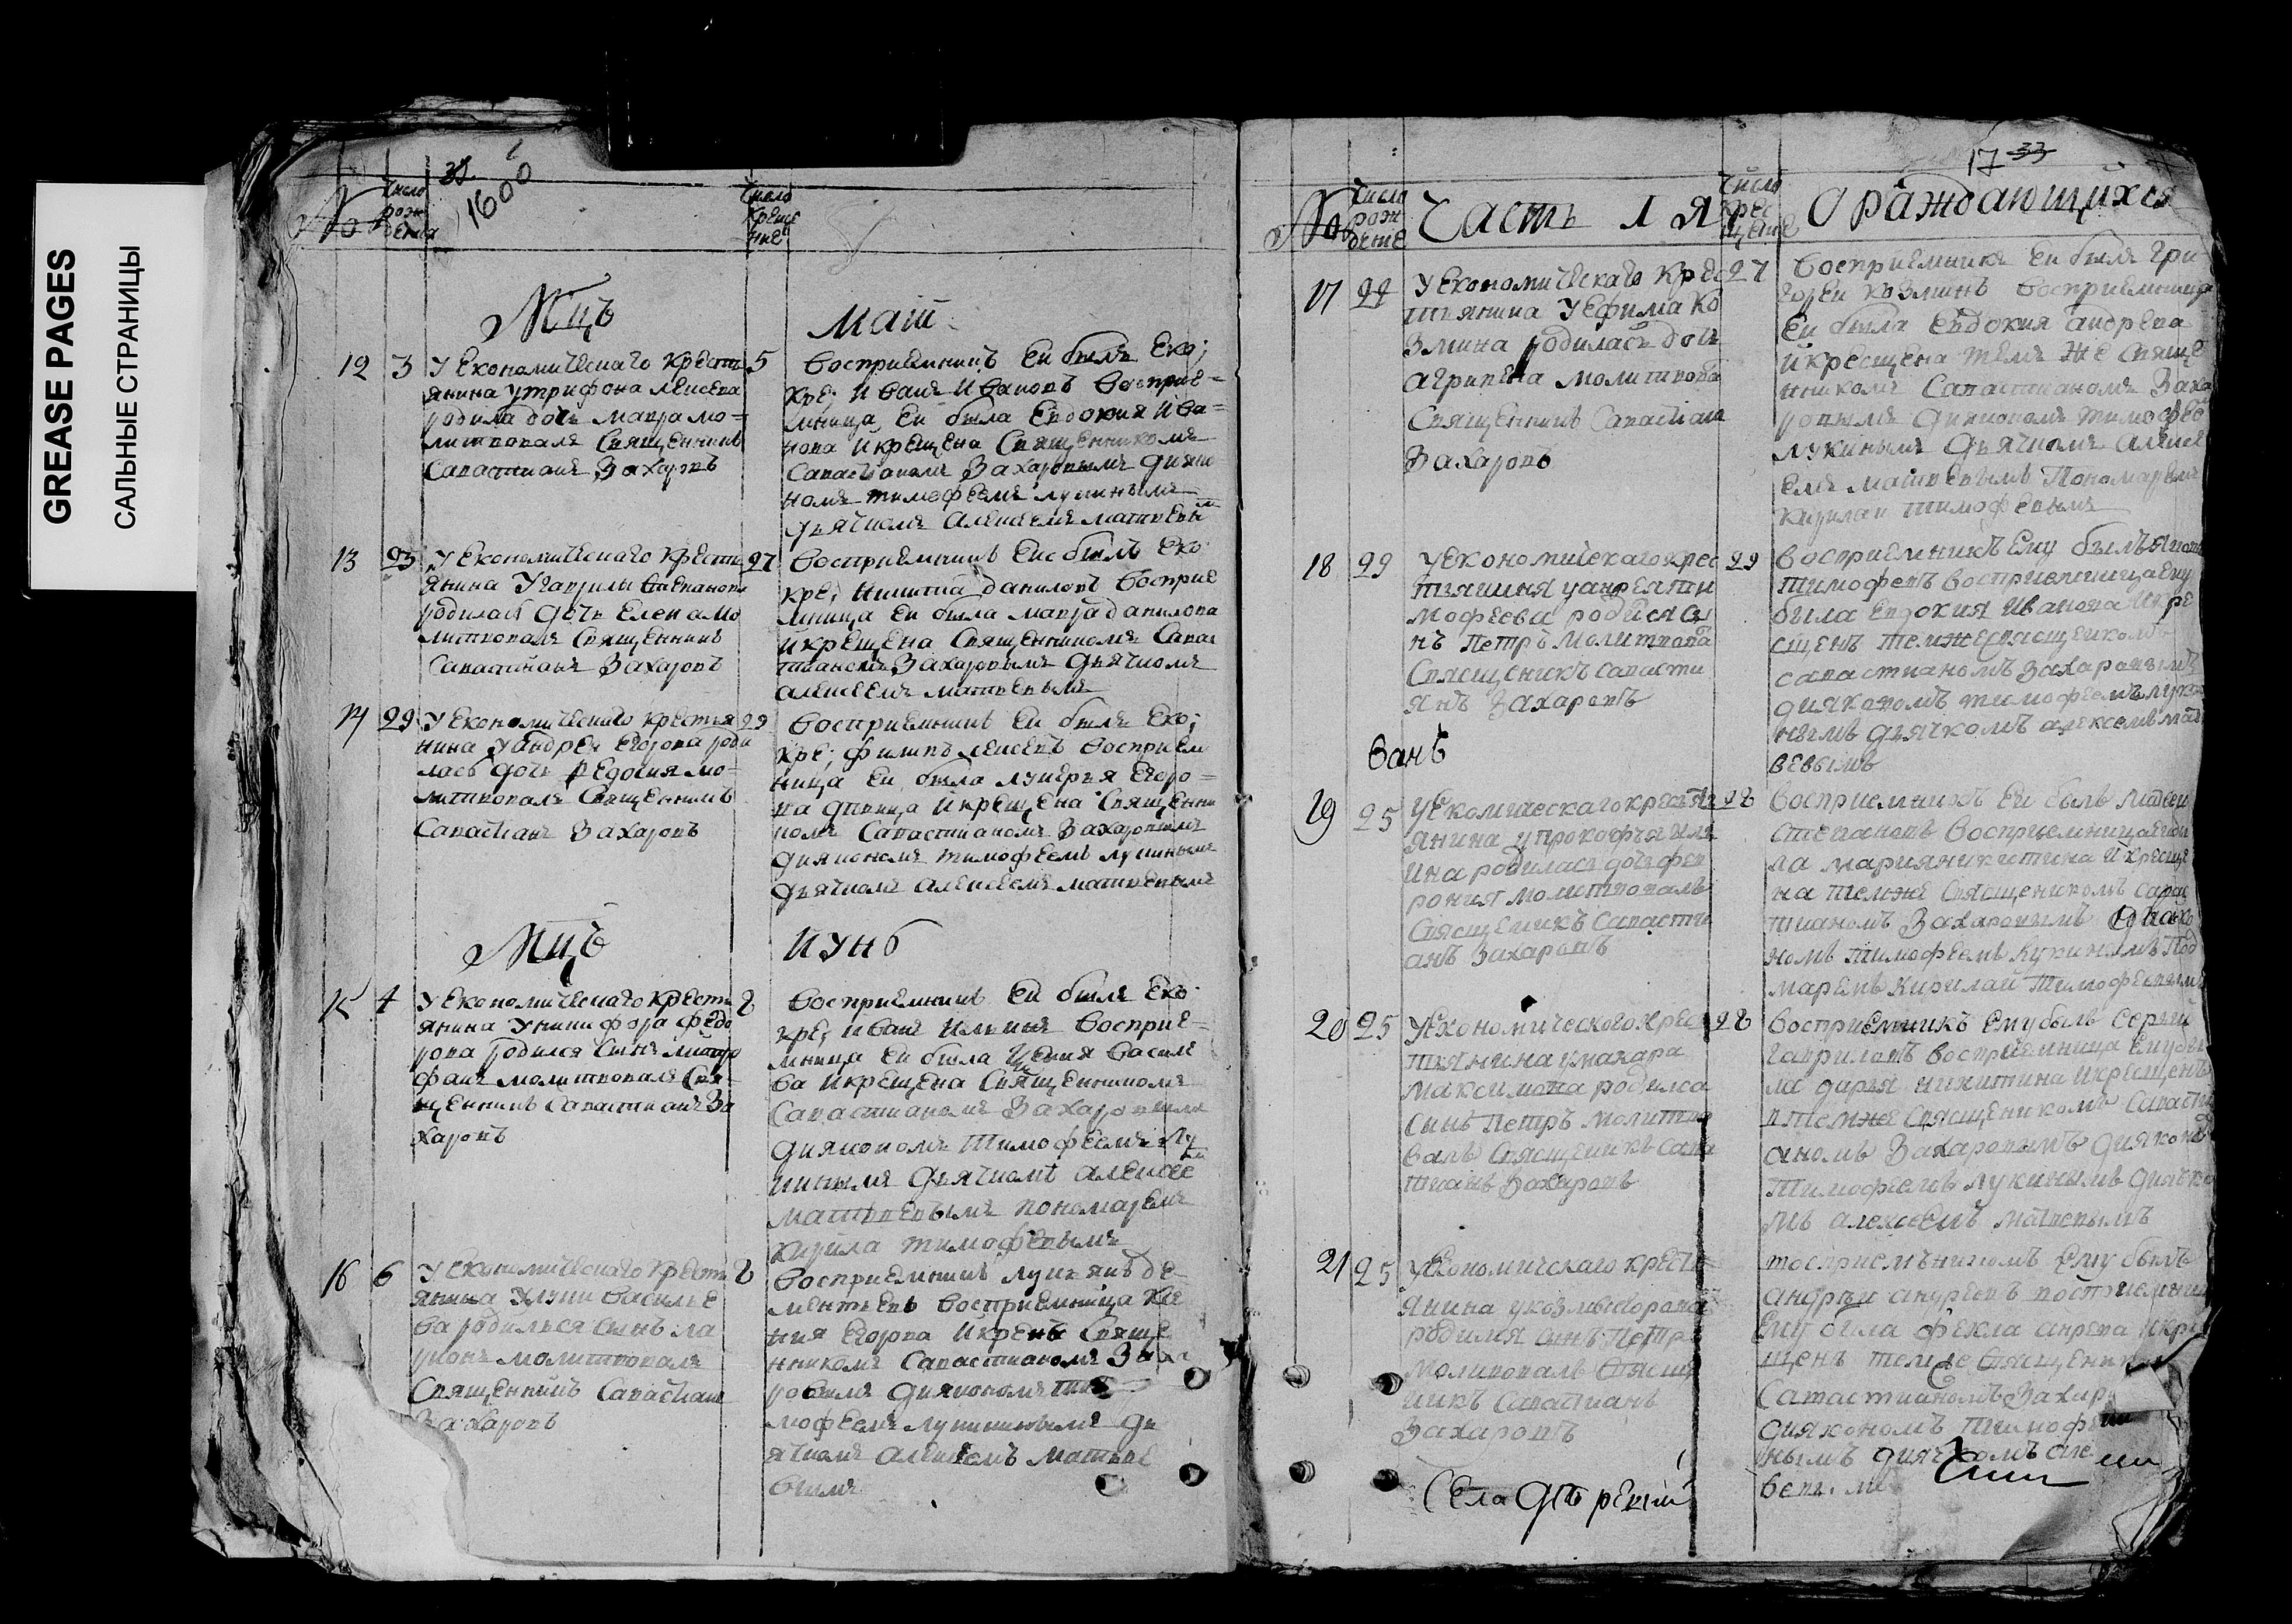 GREASE PAGES
САЛЬНЫЕ СТРАНИЦЫ
1600
№
Число
рож
дения
Число
креще
ние
Мцъ
Маiи
12 3 У Економическаго крестъ 5
янина у трифона
родила дочь мавра мо=
литвовалъ Священникъ
Савастианъ Захаровъ
восприемникъ Ей былъ Еко;
кре; Иванъ Ивановъ восприе=
мница Ей была Евдокия Ива=
нова и крещена Священникомъ
Савастианомъ Захаровымъ дияко
номъ тимофеемъ лукинымъ
дьячкомъ алексеемъ матвевы
13 23 У Економическаго кресть 27
янина У гаврилы степанова
родилась дочь Елена мо
литвовалъ Священникъ
Савастианъ Захаровъ
восприемникъ Ей былъ Еко
кре; никита даниловъ восприе
мница Ей была мавра данилова
и крещена Священникомъ Савас
тианомъ Захаровымъ дьячкомъ
алексеемъ матвевымъ
14 29 У Економическаго крестья 29
нина у андрея Егорова роди
лась дочь Федосия мо=
литвовалъ Священникъ
Савастианъ Захаровъ
восприемникъ Ей былъ Еко;
кре; филипъ восприем
ница Ей была лукерья Егоро=
ва девица и крещена Священни
комъ Савастианомъ Захаровымъ
диякономъ тимофеемъ лукинымъ
дьячкомъ алексеемъ матвевымъ
Мцъ
Иунь
15 4 У Економическаго кресть 8
янина У никифора федо
рова родился сынъ митро
фанъ молитвовалъ Свя=
щенникъ Савастианъ За
харовъ
восприемникъ Ей былъ Еко
кре; иванъ ильинъ восприе=
мница Ей была василе
ва и крещена Священникомъ
Савастианомъ Захаровымъ
диякономъ тимофеемъ лу
кинымъ дьячкомъ алексее
матвевымъ пономаремъ
кирила тимофевымъ
16 6 У Економическаго кресть 8
янина У луки василье
ва родилься сынъ ла
рионъ молитвовалъ
Священникъ Савастианъ
Захаровъ
восприемникъ лукиянъ де=
ментьевъ восприемница Ксе
ния Егорова и крещенъ Свяще
нникомъ Савастианомъ Заха
ровымъ дияконом ти
мофеемъ лукинымъ дь
ячкомъ алексеемъ матвее
вымъ
17 33
№
Число
рож
дение
Часть 1 я
Число
кре
щение
О раждающихся
17 22 У Економическаго крес 27
тьянина У Ефима Ко
змина родилась дочь
агрипена молитвова
Священникъ Савастиан
Захаровъ
восприемникъ Ей былъ гри
горей козминъ восприемница
Ей была Евдокия андрева
и крещена темъ же Свяще
нникомъ Савастианомъ Заха
ровымъ дияконом тимофее
лукинымъ дьячкомъ алексе
емъ матвевымъ Пономаремъ
кирилаи тимофевымъ
18 29 У Економическаго крес 29
тянина у андреа ти
мофеева родился сы
нъ Петръ молитвова
Священикъ савасти
янъ Захаровъ
валъ
восприемникъ Ему былъ яков
тимофевъ восприемница Ему
была Евдокия Иванова и кре
щенъ темже священикомъ
савастианомъ захаровымъ
дияконом тимофеемъ луки
нымъ дьячкомъ алексеемъ мат
вевымъ
19 25 У Екомическаго кресть 28
янина у прокофья иль
ина родилась дочь фев
рония молитвовалъ
Священикъ Савасти
анъ Захаровъ
восприемникъ Ей былъ
степановъ восприемница Ей бы
ла мария никитина и креще
на темже Священикомъ савас
тианомъ Захаровымъ дияко
номъ тимофеемъ лукинымъ По
марем Кирилай Тимофевым
20 25 У Екхономического крес 28
тьянина у макара
максимова родился
сынъ Петръ молитво
валъ священикъ сава
тианъ Захаровъ
восприемникъ Ему былъ Сергий
гавриловъ восприемница Ему бы
ла дарья никитина и крещенъ
темже священикомъ Савасти
аномъ Захаровымъ дияконо
Тимофеемъ Лукинымъ дьячко
мъ алексеемъ матвевымъ
21 25 У Економическаго кресть=
янина у козмы
родился сынъ Петр
молитвовалъ Свящ
никъ Савастианъ
Захаровъ
восприемъникомъ Ему былъ
андреи андреевъ восприемниц
Ему была фекла анрева и кре
щенъ темже Священико
Савастианомъ Захар
дияконом Тимофе
нымъ дьячкомъ але
Села